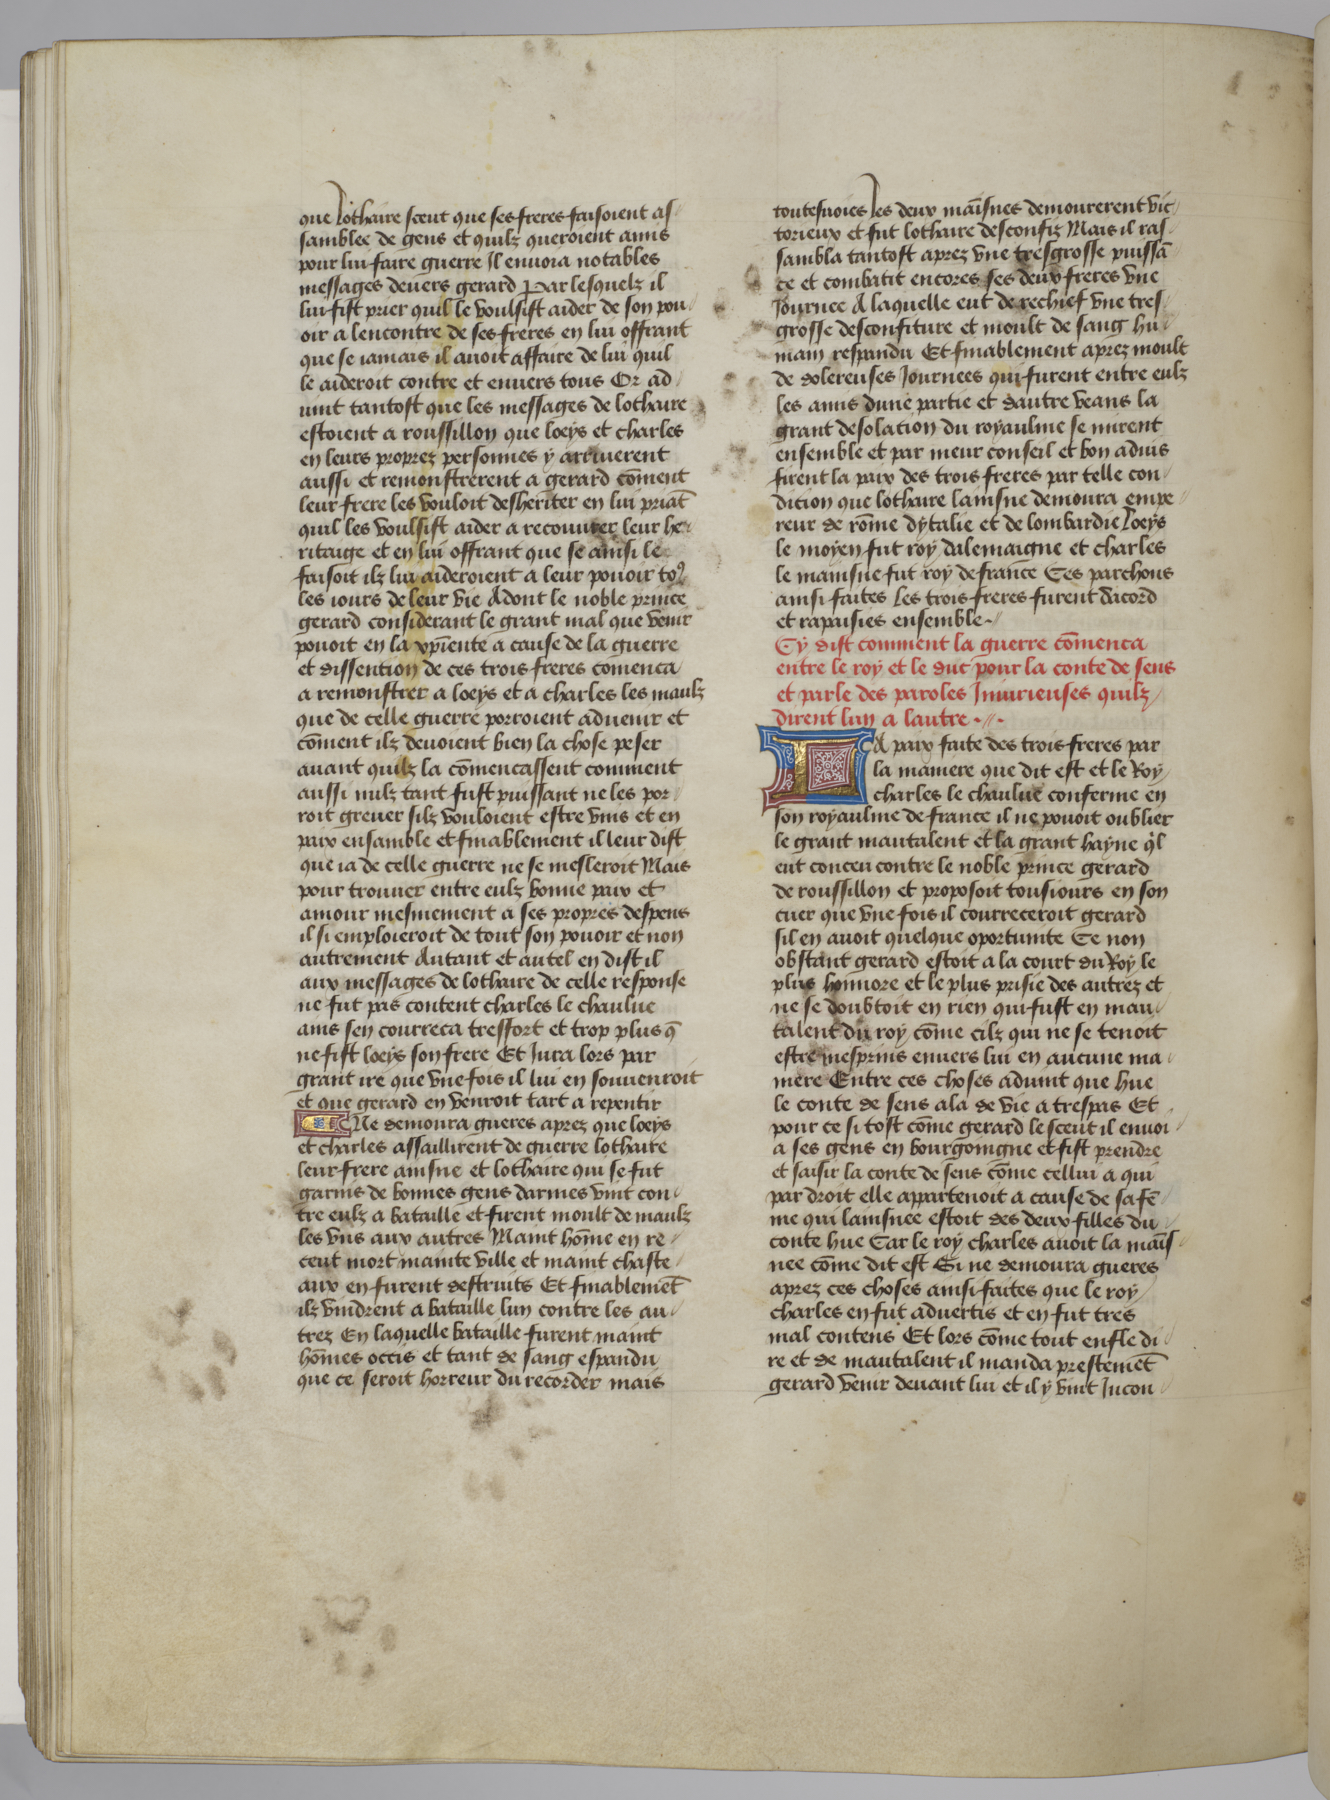 que Lothaire sceut que ses freres faisoient as
samblee de gens et quilz queroient amis
pour lui faire guerre Il enuoia notables
messages deuers gerard Par lesquelz il
lui fist prier quil le voulsist aider de son pou
oir a lencontre de ses freres en lui offrant
que se iamais il auoit affaire de lui quil
le aideroit contre et enuers tous Or ad
uint tantost que les messages de lothaire
estoient a roussillon que loeys et charles
en leurs proprez personnes y arriuerent
aussi et remonstrerent a gerard cōment
leur frere les vouloit desheriter en lui priāt
quil les voulsist aider a recouurer leur he
ritaige et en lui offrant que se ainsi le
faisoit ilz lui aideroient a leur pouoir toꝰ
les iours de leur vie Adont le noble prince
gerard considerant le grant mal que venir
pouoit en la xp̄iente a cause de la guerre
et dissention de ces trois freres comenca
a remonstrer a loeys et a charles les maulz
que de celle guerre porroient aduenir et
cōment ilz deuoient bien la chose peser
auant quilz la cōmencassent comment
aussi nulz tant fust puissant ne les por
roit greuer silz vouloient estre vnis et en
paix ensamble et finablement il leur dist
que ia de celle guerre ne se mesleroit Mais
pour trouuer entre eulz bonne paix et
amour mesmement a ses propres despens
il si emploieroit de tout son pouoir et non
autrement Autant et autel en dist il
aux messages de lothaire de celle response
ne fut pas content charles le chaulue
ains sen courreca tresfort et trop plus q̄
ne fist loeys son frere Et Iura lors par
grant ire que vne fois il lui en souuenroit
et que gerard en venroit tart a repentir
Ne demoura gueres aprez que loeys
et charles assaillirent de guerre lothaire
leur frere ainsne et lothaire qui se fut
garnis de bonnes gens darmes vint con
tre eulz a bataille et firent moult de maulz
les vns aux autres Maint hōme en re
ceut mort mainte ville et maint chaste
aux en furent destruits Et finablemēt
ilz vindrent a bataille lun contre les au
trez En laquelle bataille furent maint
hōmes occis et tant de sang espandu
que ce seroit horreur du recorder mais
toutesuoies Les deux māisnes demourerent vic
torieux et fut lothaire desconfiz Mais il ras
sambla tantost aprez vne tresgrosse puissā
ce et combatit encores ses deux freres vne
Journee A laquelle eut de rechief vne tres
grosse desconfiture et moult de sang hu
main respandu Et finablement aprez moult
de dolereuses Journees qui furent entre eulz
les amis dune partie et dautre veans la
grant desolation du royaulme se mirent
ensemble et par meur conseil et bon aduis
firent la paix des trois freres par telle con
dicion que lothaire lainsne demoura empe
reur de rōme dytalie et de lombardie Loeys
le moyen fut roy dalemaigne et charles
le mainsne fut roy de france Ces parchons
ainsi faites Les trois freres furent dacord
et rapaisies ensemble
Cy dist comment la guerre cōmenca
entre le roy et le duc pour la conte de sens
et parle des paroles Iniurieuses quilz
dirent lun a lautre
LA paix faite des trois freres par
la maniere que dit est et le Roy
charles le chaulue conferme en
son royaulme de france il ne pouoit oublier
le grant mautalent et la grant hayne q̄l
eut conceu contre le noble prince gerard
de roussillon et proposoit tousiours en son
cuer que vne fois il courreceroit gerard
sil en auoit quelque oportunite Ce non
obstant gerard estoit a la court du Roy le
plus honnore et le plus prisie des autrez et
ne se doubtoit en rien qui fust en mau
talent du roy cōme cilz qui ne se tenoit
estre mesprins enuers lui en aucune ma
niere Entre ces choses aduint que hue
le conte de sens ala de vie a trespas Et
pour ce si tost cōme gerard le sceut il enuoi
a ses gens en bourgoingne et fist prendre
et saisir la conte de sens cōme cellui a qui
par droit elle appartenoit a cause de sa fē
me qui lainsnee estoit des deux filles du
conte hue Car le roy charles auoit la māis
nee cōme dit est Si ne demoura gueres
aprez ces choses ainsi faites que le roy
charles en fut aduertis et en fut tres
mal contens Et lors cōme tout enfle di
re et de mautalent il manda prestemēt
gerard venir deuant lui et il y vint Incon